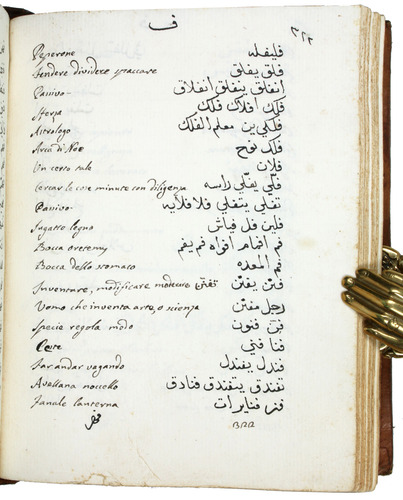 ف
٣٢٢
Peperone فليفله
fendere dividere spaccare فلق يفلق
Passivo انفلق ينفلق انفلاق
Sfera فلك افلاك فلك
Astrologo فلكي ين معلم الفلك
Arca di Noe فلك نوح
Un certo tale فلان
Cercar le cose minute con diligenza فلي يفلي راسه
Passivo تفلي يتفلي فلا فلاية
Sugatto legno فلين فل فياش
Bocca فم افمام افواه فم يفم
Bocca dello stomaco فم المعده
Inventare, modificare فنن يفنن
Uomo che inventa arte, o scienza رجل مفنن
Specie regola modo فن فنون
فنا فني
Far andar vagando فندل يفندل
Avellana nocello تفندق يتفندق فنادق
Fanale lanterna فنر فنايرات